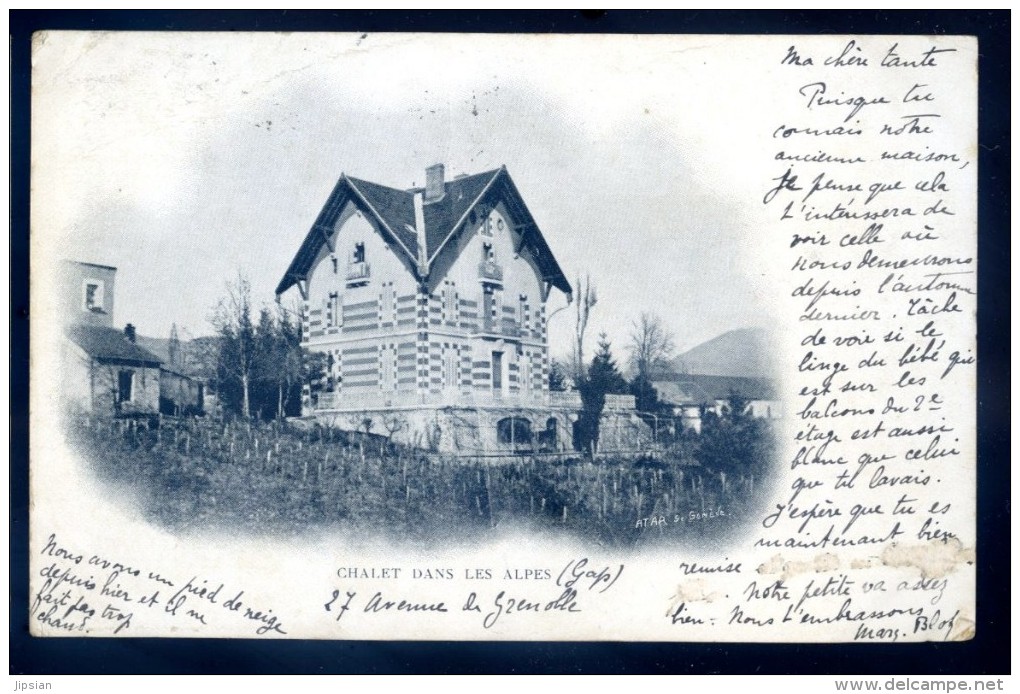 Ma chère tante
Puisque tu
connais notre
ancienne maison,
je pense que cela
t'intéressera de
voir celle où
nous demeurons
depuis l'automne
dernier. Tâche
de voir si le
linge du bébé qui
est sur les
balcons du 2e
étage est aussi
blanc que celui
que tu lavais.
J'espère que tu es
maintenant bien
remise
Notre petite va assez
bien. Nous t'embrassons
Marg.
ATAR Sc GENÈVE.
CHALET DANS LES ALPES (Gap)
27 Avenue de Grenoble
Nous avons un pied de neige
depuis hier et il ne
fait pas trop
chaud.
jipsian
http://www.delcampe.net